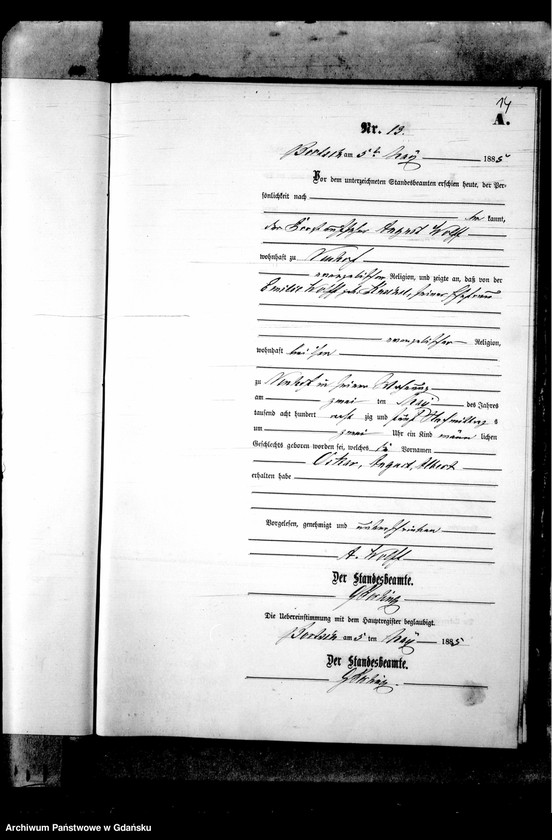 14
A.
Nr. 13.
am 5t May 1885
Vor dem unterzeichneten Standesbeamten erschien heute, der Per-
sönlichkeit nach
kannt,
der August Wolff
wohnhaft zu Neuhof
evangelischer Religion, und zeigte an, daß von der
Emilie Wolff geb. seiner Ehefrau
evangelischer Religion,
wohnhaft bei ihm
zu Neuhof in seiner Wohnung
am zwei ten May des Jahres
tausend acht hundert acht zig und fünf Nachmittags
um zwei Uhr ein Kind männ lichen
Geschlechts geboren worden sei, welches Vornamen
Oskar, August, Albert
erhalten habe
Vorgelesen, genehmigt und unterschrieben
A. Wolff
Der Standesbeamte.
Die Uebereinstimmung mit dem Hauptregister beglaubigt.
am 5 ten May 1885
Der Standesbeamte.
Archiwum Państwowe w Gdańsku